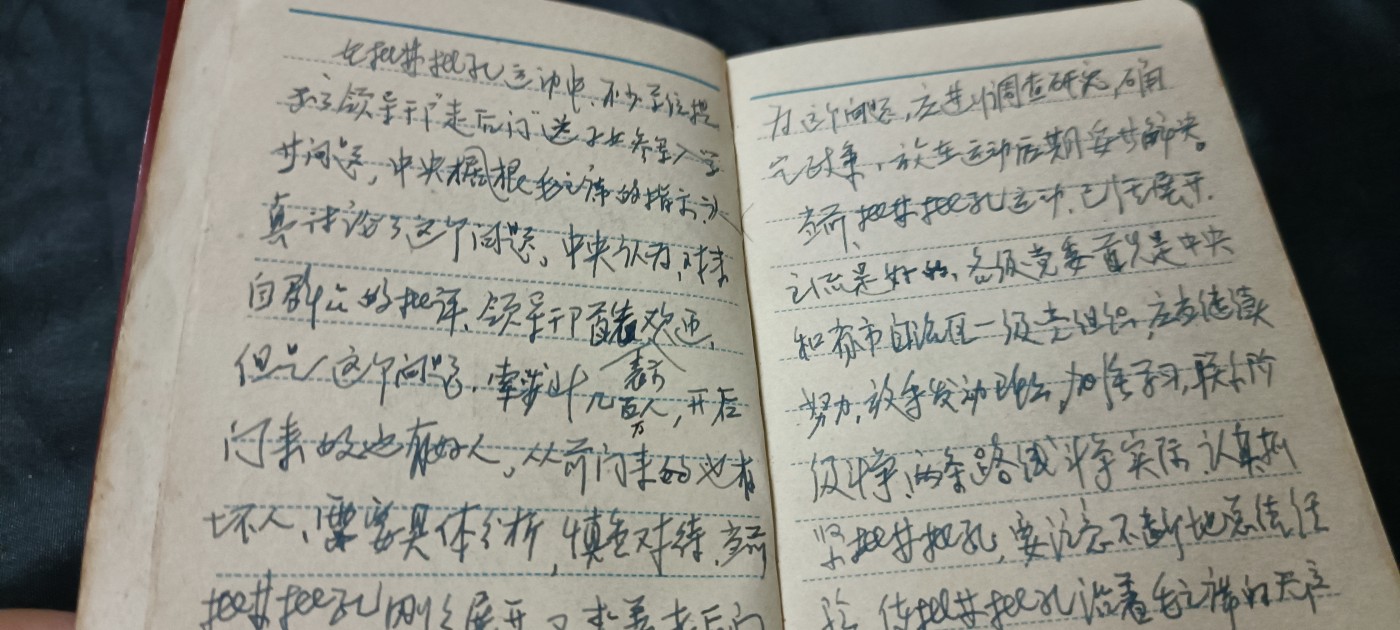 在批林批孔运动中，不少单位提
出了领导干"走后门"送子女参军入学
等问题，中央根据毛主席的指示，认
真讨论了这个问题。中央认为，对来
自群众的批评，领导干P首先表示欢迎，
但是这个问题，牵涉到几百万人，开后
门来的也有好人，从前门来的也有
坏人，需要具体分析，慎重对待，当前
批林批孔刚刚展开，又夹着走后门
为这个问题，应进行调查研究，确
定政策，放在运动后期妥善解决。
当前，批林批孔运动，已广泛展开，
主流是好的，各级党委首先是中央
和省市自治区一级党组织，应当继续
努力，放手发动群众，加强学习，联系阶
级斗争，两条路线斗争实际，认真抓
紧批林批孔，要注意不断地总结经
验，使批林批孔沿着毛主席的